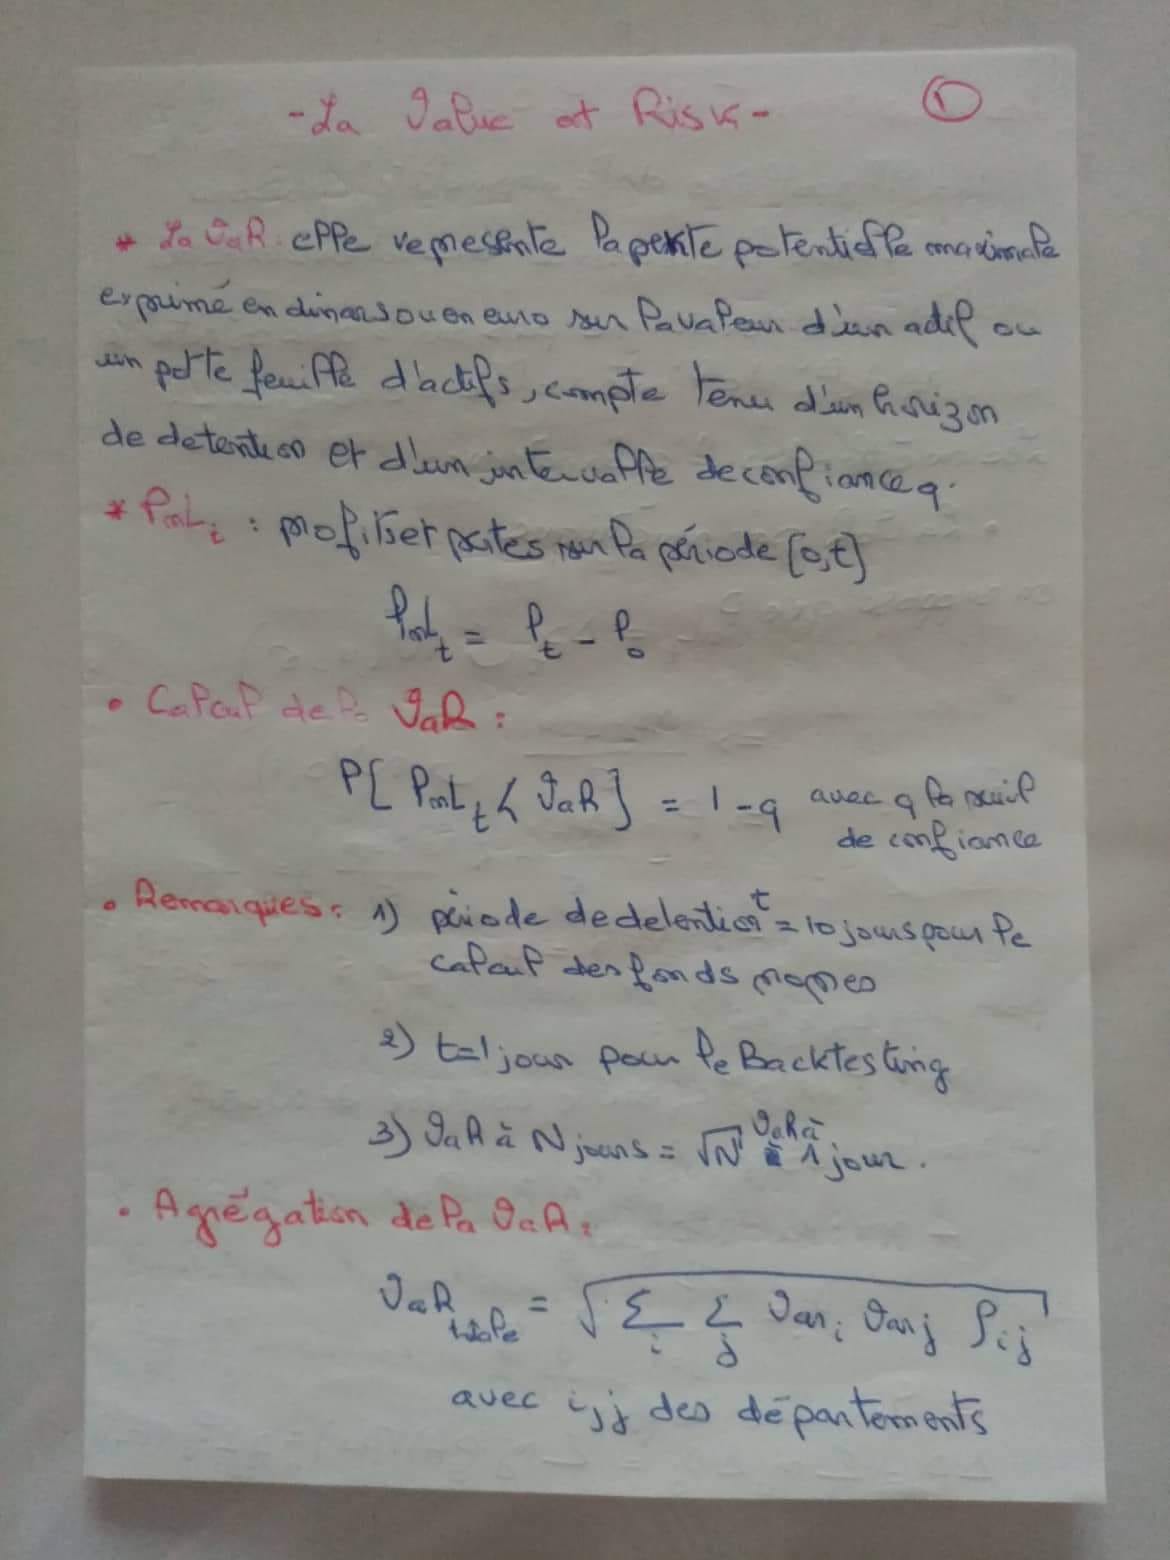 - La Value at Risk -
1
* La VaR : elle represente la perte potentielle maximale
exprimé en dinars ou en euro sur la valeur d'un actif ou
un porte feuille d'actifs, compte tenu d'un horizon
de detention et d'un intervalle de confiance q.
* PnL_t : profits et pertes sur la période [0,t]
PnL_t = P_t - P_0
• Calcul de la VaR :
P[ PnL_t < VaR ] = 1 - q avec q le seuil
de confiance
• Remarques : 1) période de detention t = 10 jours pour le
calcul des fonds propres
2) t=1 jour pour le Backtesting
3) VaR à N jours = √N VaR à 1 jour.
• Agrégation de la VaR :
VaR_totale = √ Σ_i Σ_j Var_i Var_j ρ_ij
avec i,j des départements